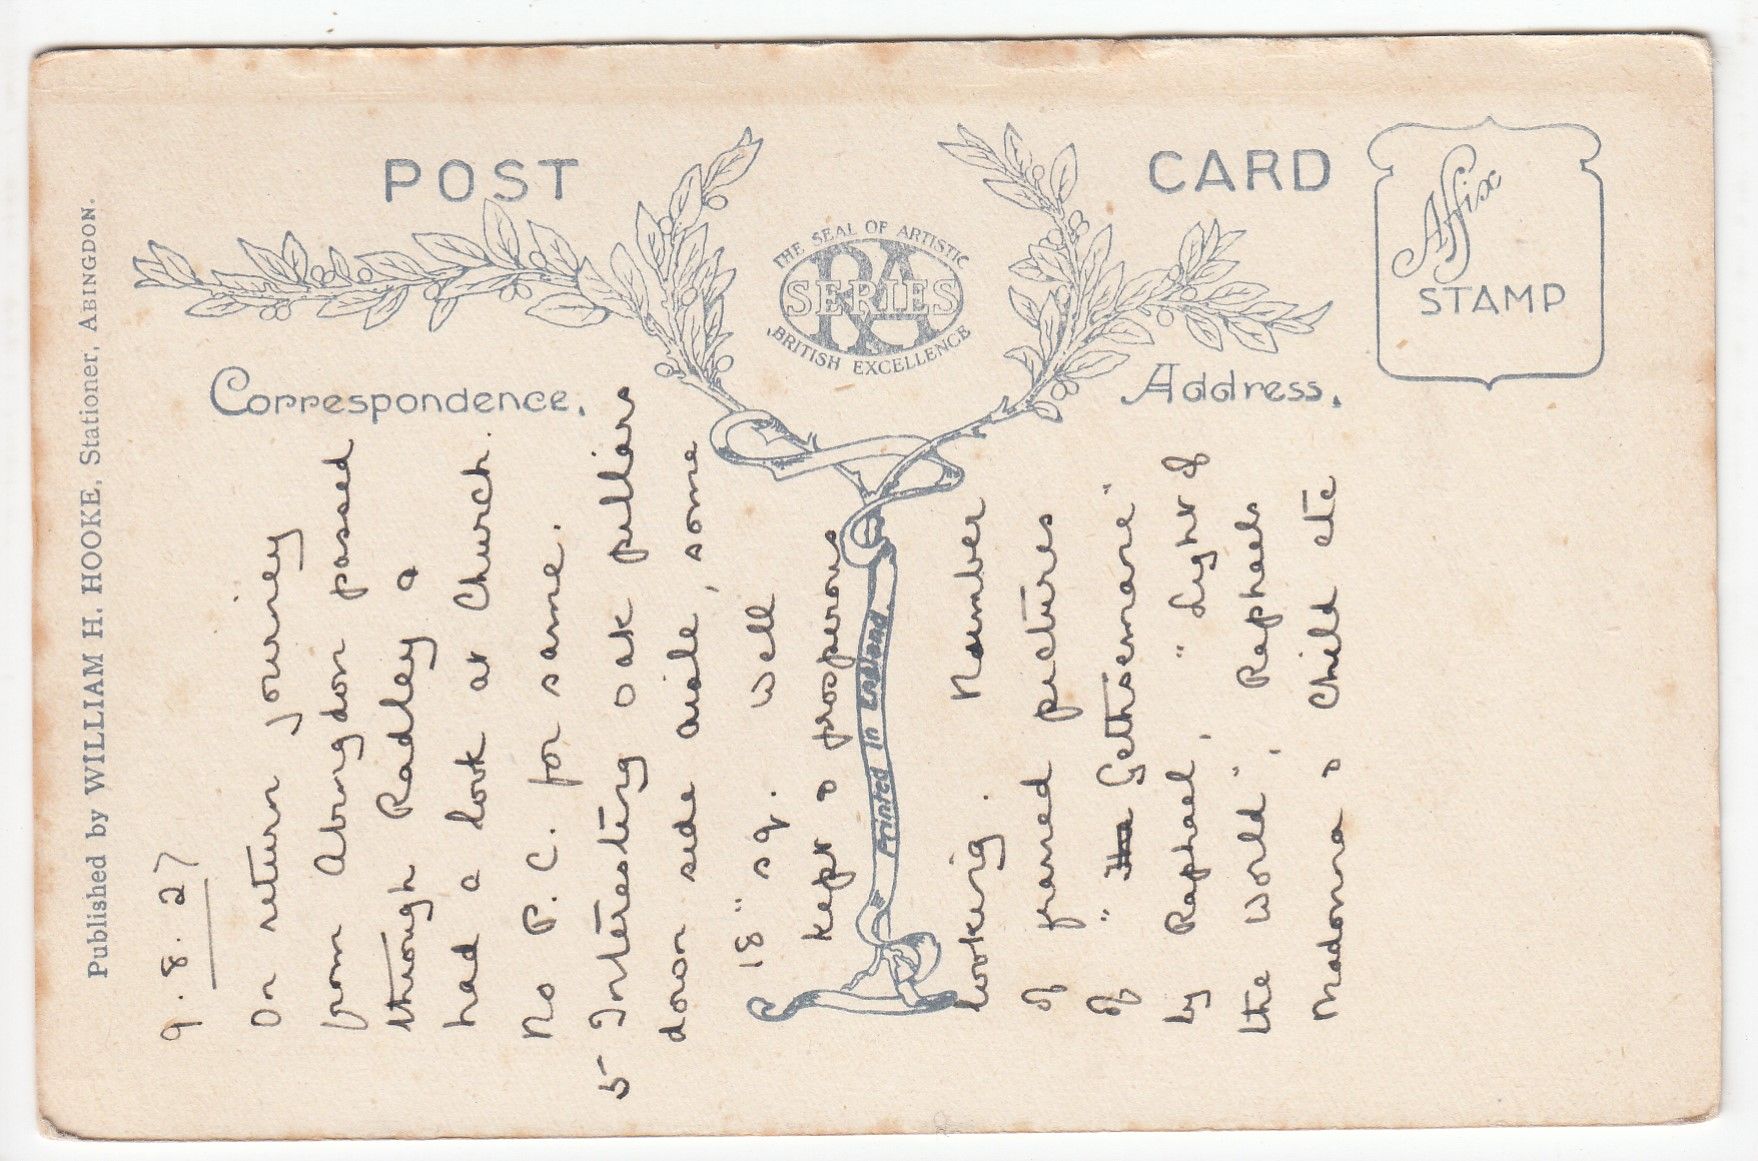 POST CARD
Affix
STAMP
THE SEAL OF ARTISTIC
RA
SERIES
BRITISH EXCELLENCE
Correspondence.
Address.
Printed in England.
Published by WILLIAM H. HOOKE, Stationer, ABINGDON.
9.8.27
On return journey
from Abingdon passed
through Radley &
had a look at Church.
No P.C. for same.
5 Interesting oak pillars
down side aisle, some
18" sq. Well
kept & prosperous
looking. Number
of framed pictures
of " Gethsemane"
by Raphael, "Light of
the World", Raphaels
Madonna & Child etc